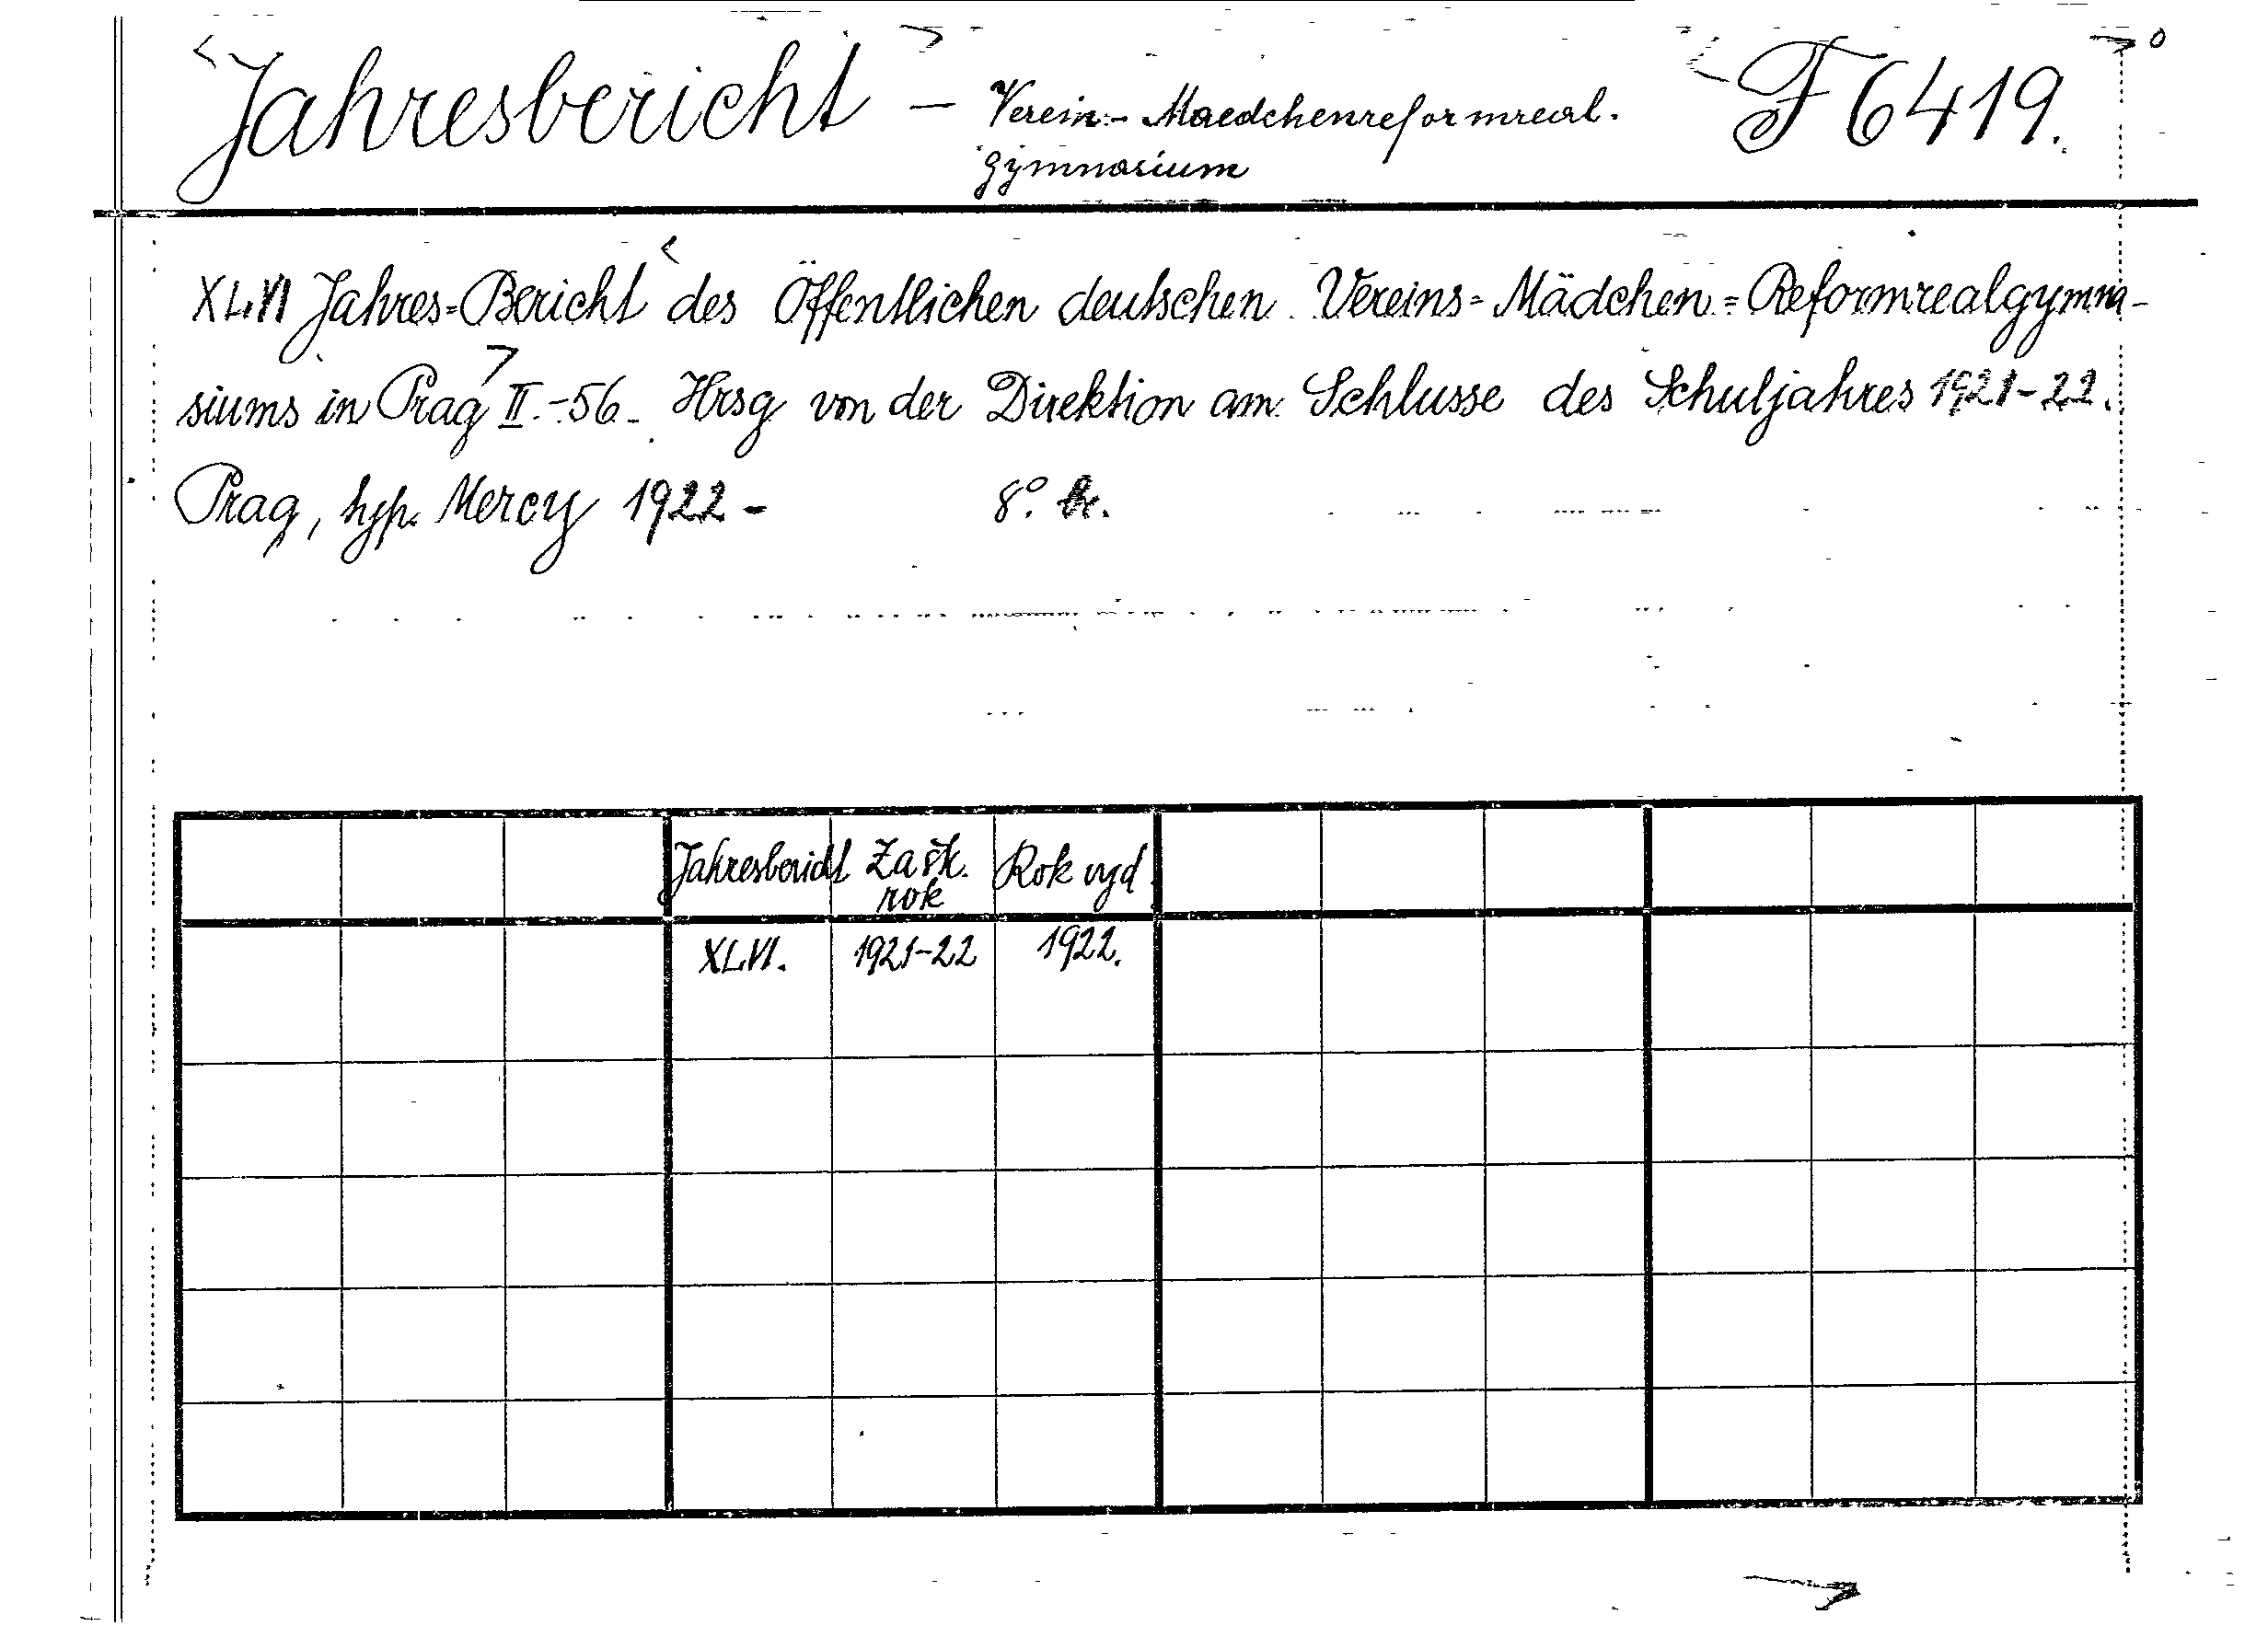 Jahresbericht – Verein.- Maedchenreformreal. F 6419.
gymnasium
XLVI Jahres=Bericht des Öffentlichen deutschen Vereins=Mädchen=Reformrealgymna-
siums in Prag II.-56. Hrsg von der Direktion am Schlusse des Schuljahres 1921-22.
Prag, typ. Mercy 1922 - 8°. br.
Jahresbericht Za šk. Rok vyd.
rok
XLVI. 1921-22 1922.